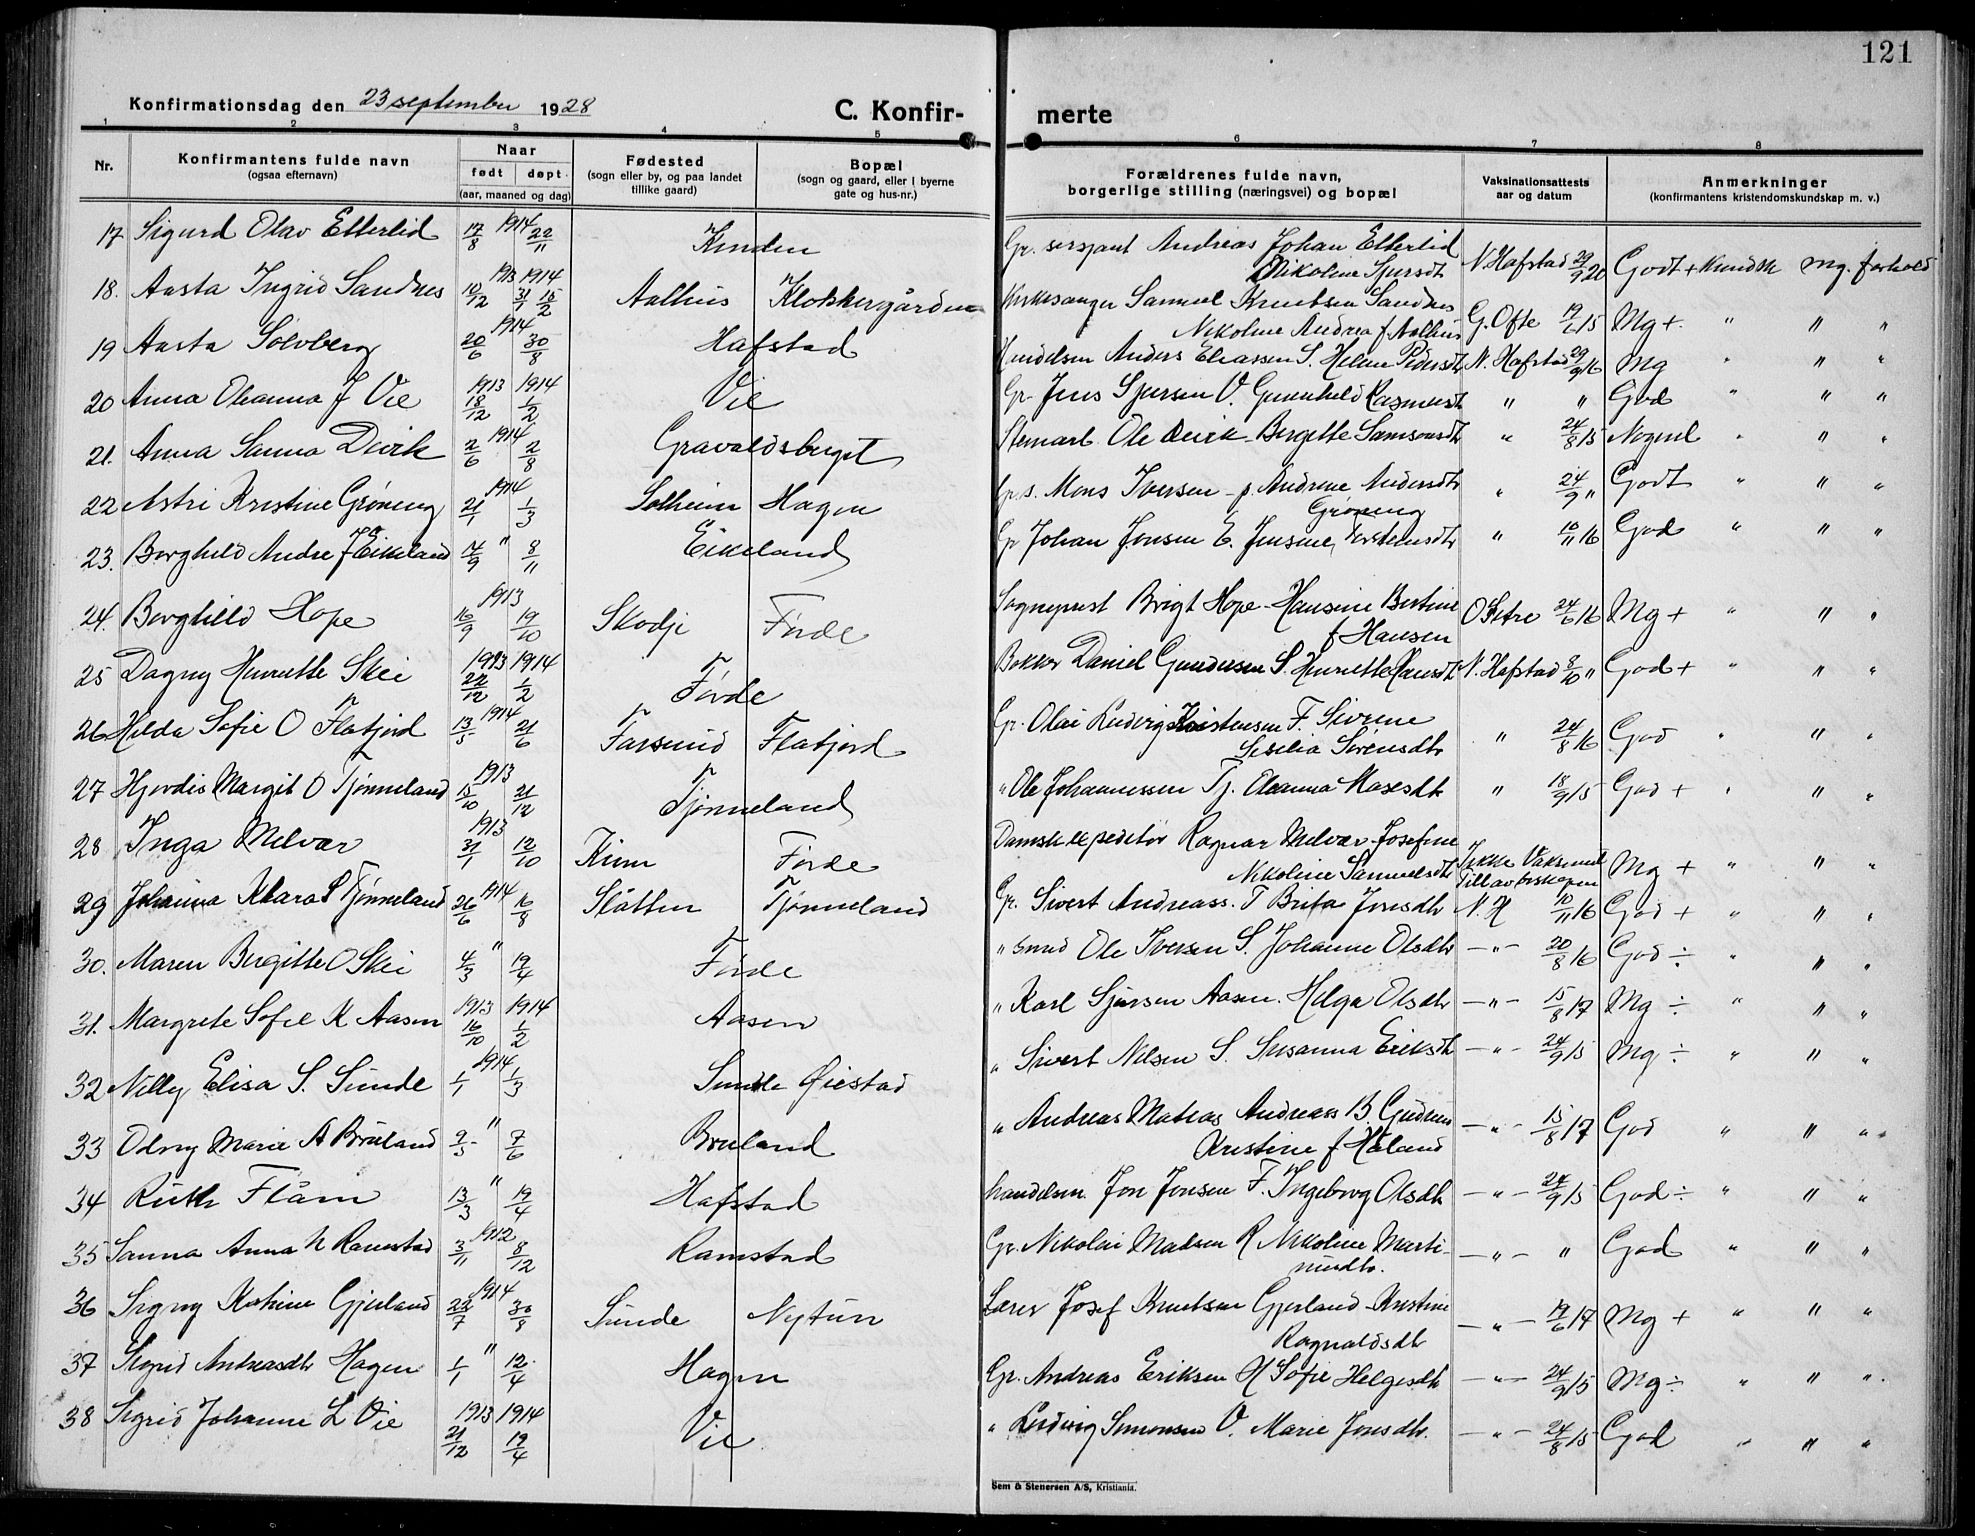 121
Konfirmationsdag den 23 september 1928 C. Konfir- merte
1 2 3 4 5 6 7 8
Nr. Konfirmantens fulde navn (ogsaa efternavn) Naar født døpt (aar, maaned og dag) Fødested (sogn eller by, og paa landet tillike gaard) Bopæl (sogn og gaard, eller i byerne gate og hus-nr.) Forældrenes fulde navn, borgerlige stilling (næringsvei) og bopæl Vaksinationsattests aar og datum Anmerkninger (konfirmantens kristendomskundskap m. v.)
17 Sigurd Olav Etterlid 17/8 1914 22/11 Kinden Gr. sersjant Andreas Johan Etterlid Nikoline Sjursdt N. Hafstad 29/9 20 Godt + Kundsk mg. forhold
18. Aasta Ingrid Sandnes 1913 10/12 1914 15/2 Aalhus Klokkergården Kirkesanger Samuel Knutsen Sandnes Nikoline Andrea f Aalhus G. Ofte 19/6 15 Mg + " " "
19 Aasta Solvberg 20/6 1914 30/8 Hafstad Handelsm Anders Eliassen S. Helene Pedersdt N. Hafstad 29/9 16 Mg " " "
20 Anna Oleanna J Vie 1913 18/12 1914 1/2 Vie Gr. Jens Sjursen V. Gunnhild Rasmusdt " " God " " "
21. Anna Sanna Devik 2/6 1914 2/8 Gravaldsberget Stenarb Ole Devik Bergitte Samsonsdt " 24/8 15 Nogenl " " "
22 Astri Kristine Grøning 21/1 1914 1/3 Solheim Hagen Gr. s. Mons Iversen - p. Andrine Andersdt Grøning " 24/9 " Godt " " "
23. Borghild Andre J Eikeland 14/9 " 8/11 Eikeland Gr Johan Jonsen E. Jensine Torstensdt " 10/11 16 God " " "
24. Borghild Hope 16/9 1913 19/10 Skodje Førde Sogneprest Brigt Hope - Hansine Bertine f Hansen O Setre 24/6 16 Mg + " " "
25 Dagny Henriette Skei 1913 22/12 1914 1/2 Førde Bøkker Daniel Gundersen S. Henriette Hansdt N. Hafstad 8/10 " God + " " "
26 Hilda Sofie O Flatjord 13/5 1914 21/6 Farsund Flatjord Gr. Olai Ludvig Kristensen F. Sivrine Sesilia Sørensdt " 24/8 16 God " " "
27 Hjordis Margit O Tjønneland 15/10 1913 21/12 Tjønneland " Ole Johannessen Tj. Oleanna Mosesdt " 18/9 15 God + " " "
28 Inga Melvær 31/1 1913 12/10 Kinn Førde Dampsk. expeditør Ragnar Melvær Josefine Nikoline Samuelsdt Ikke Vaksinert Till av biskopen Mg + " " "
29 Johanna Klara S Tjønneland 26/6 1914 16/8 Slåtten Tjønneland Gr. Sivert Andreass. T Brita Jonsdt N. H 10/11 16 God + " " "
30. Maren Birgitte O Skei 4/3 " 19/4 Førde " smed Ole Iversen S. Johanne Olsdt -"- 20/8 16 God ÷ " " "
31. Margrete Sofie K Aasen 1913 16/10 1914 1/2 Aasen " Karl Sjursen Aasen. Helga Olsdt -"- 15/8 17 Mg ÷ " " "
32 Nilly Elisa S. Sunde 1/1 1914 1/3 Sunde Øiestad " Sivert Nilsen S. Susanna Eriksdt -"- 24/9 15 Mg ÷ " " "
33 Odny Marie A Bruland 9/5 " 7/6 Bruland " Andreas Matias Andreass B. Gudrun Kristine f Håland -"- 15/8 17 God " " "
34 Ruth Flåm 13/3 " 19/4 Hafstad handelsm. Jon Jonsen F. Ingeborg Olsdt -"- 24/9 15 God ÷ " " "
35 Sanna Anna N Ramstad 3/11 1912 8/12 Ramstad Gr. Nikolai Madsen R Nikoline Martinusdtr. -"- " God " " "
36 Signy Katrine Gjerland 22/7 1914 30/8 Sunde Nytun Lærer Josef Knutsen Gjerland Kristine Ragnaldsdt -"- 19/6 17 Mg + " " "
37 Sigrid Andreasdt Hagen 1/1 " 12/4 Hagen Gr. Andreas Eriksen H Sofie Helgesdt -"- 24/9 15 Mg ÷ " " "
38 Sigrid Johanne L Vie 1913 21/12 1914 19/4 Vie " Ludvig Simonsen V. Marie Jonsdt. -"- 24/8 15 God " " "
Sem & Stenersen A/S, Kristiania.